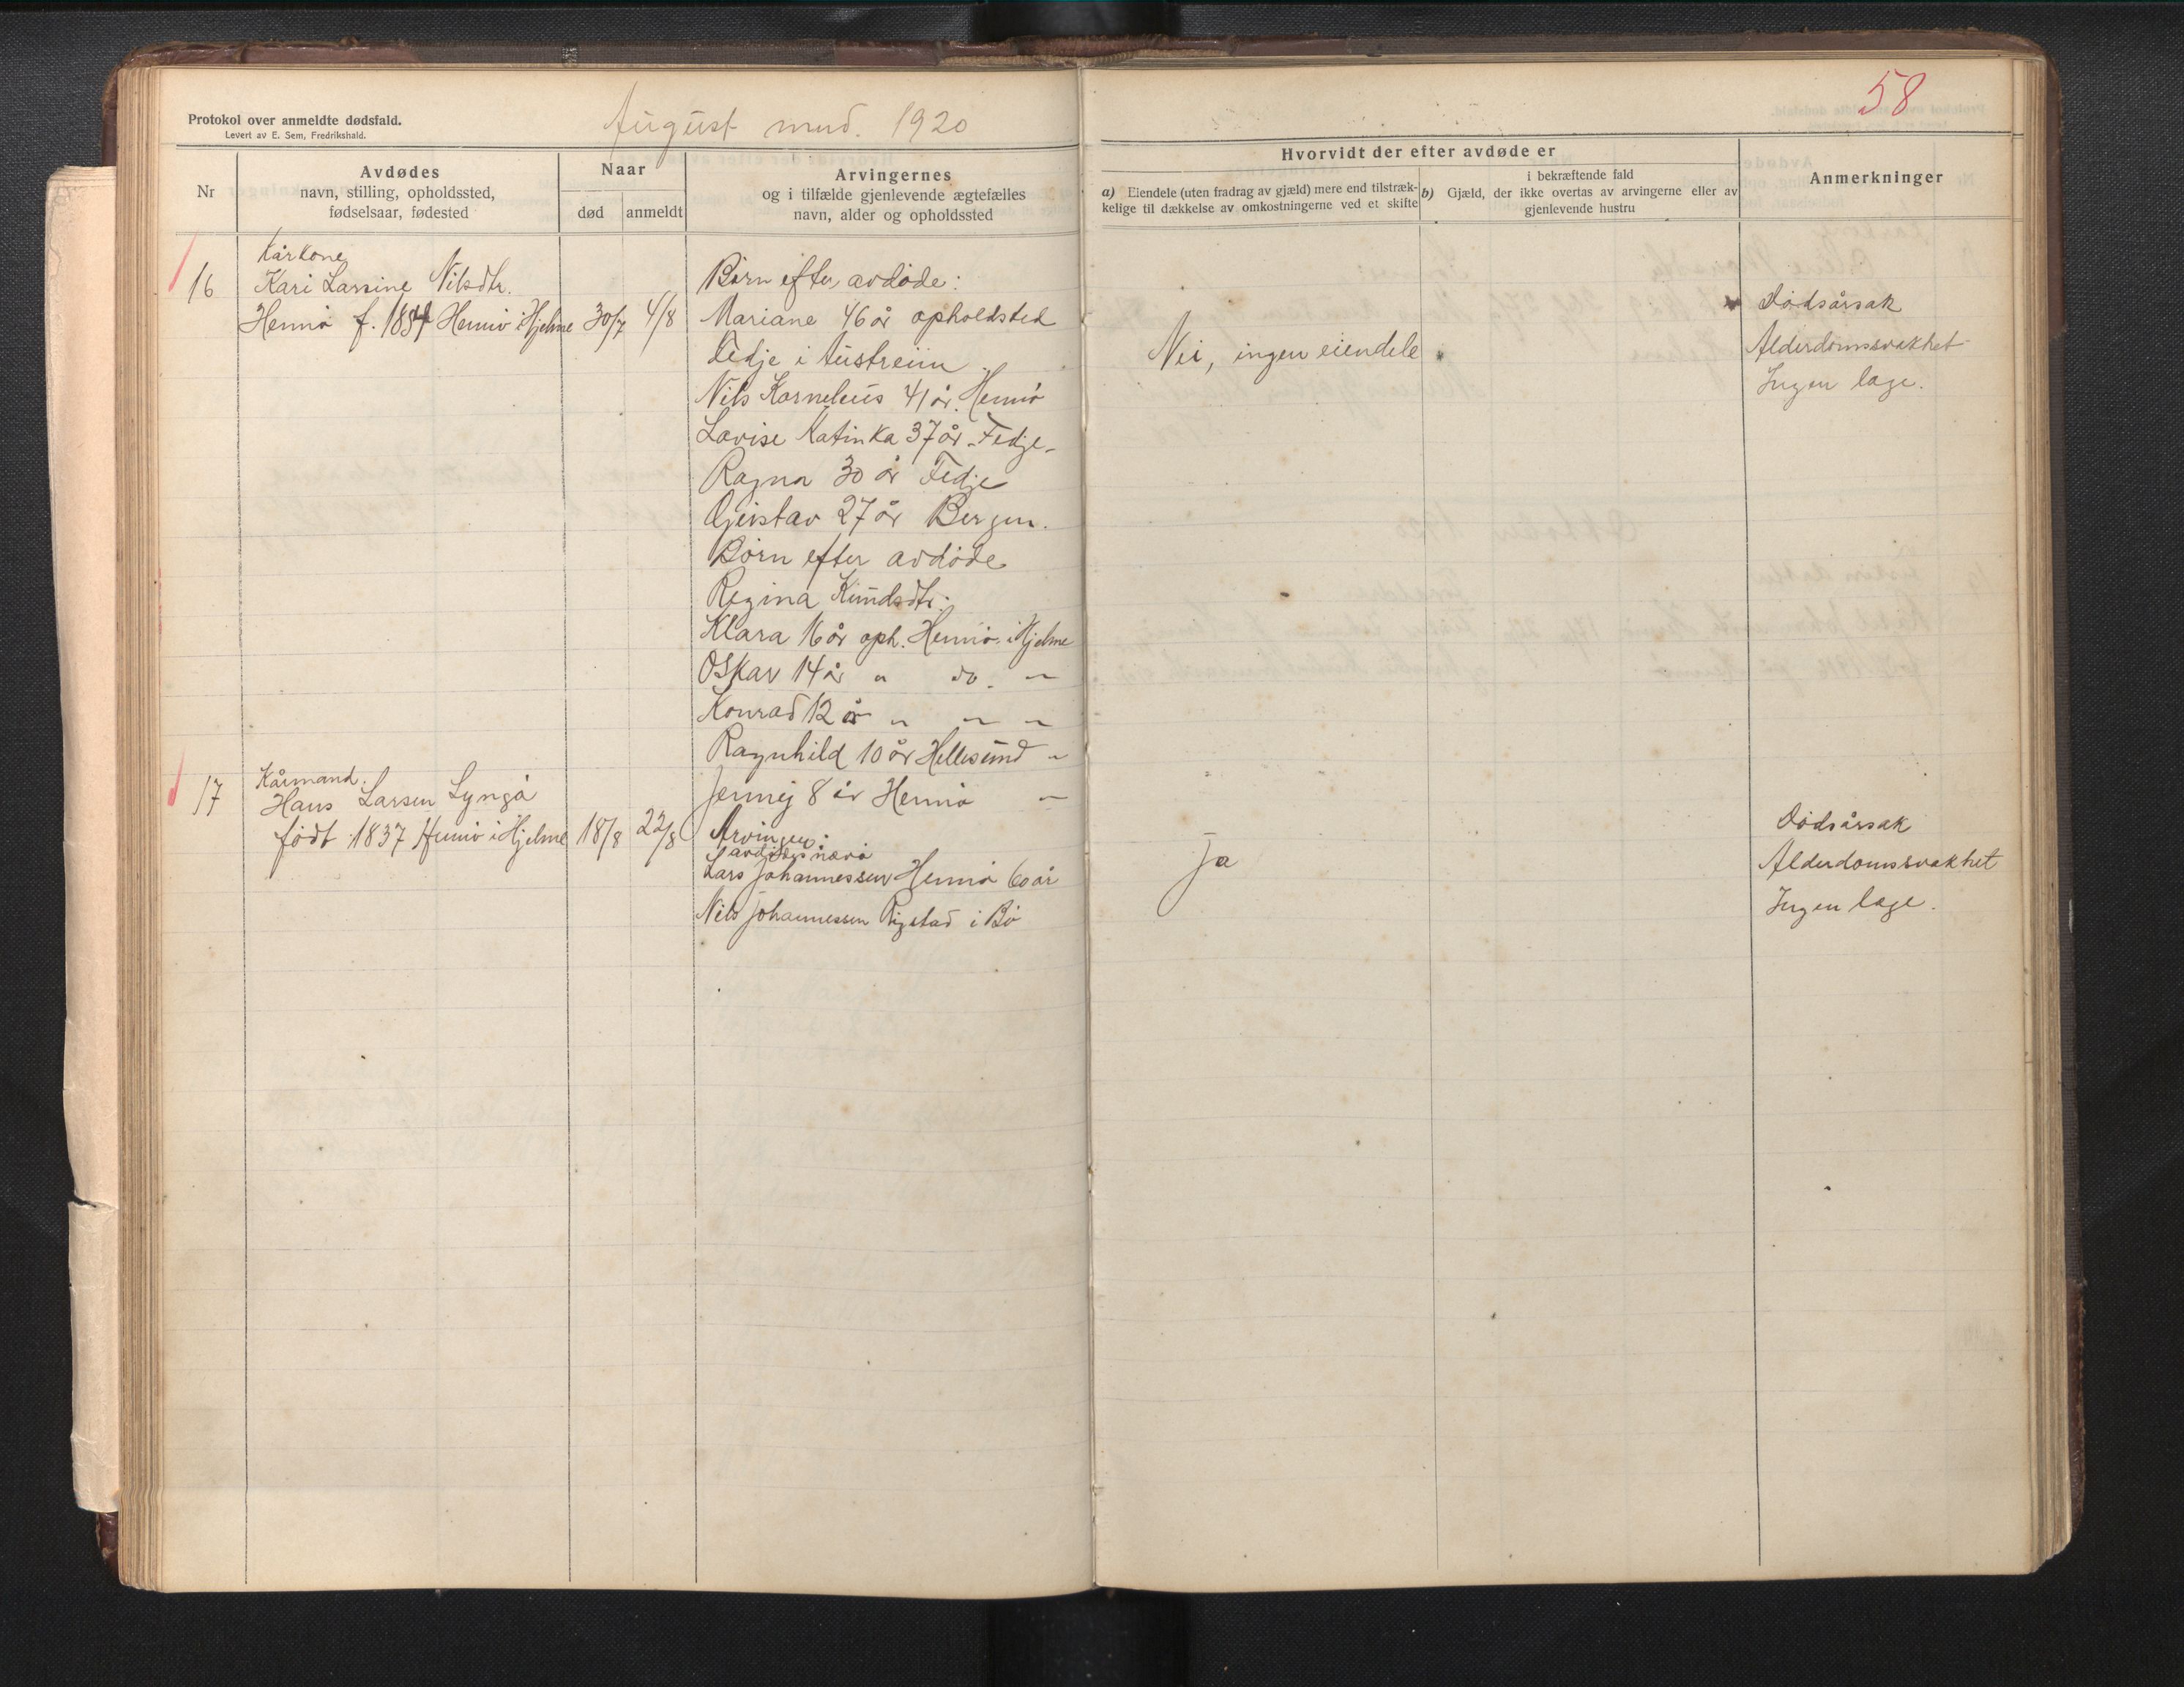 Protokol over anmeldte dødsfald.
Levert av E. Sem, Fredrikshald.
August mnd. 1920
58
Nr
Avdødes
navn, stilling, opholdssted,
fødselsaar, fødested
Naar
død
anmeldt
Arvingernes
og i tilfælde gjenlevende ægtefælles
navn, alder og opholdssted
Hvorvidt der efter avdøde er
a) Eiendele (uten fradrag av gjæld) mere end tilstræk-
kelige til dækkelse av omkostningerne ved et skifte
i bekræftende fald
b) Gjæld, der ikke overtas av arvingerne eller av
gjenlevende hustru
Anmerkninger
16
Kårkone
Kari Larsine Nilsdtr.
Hennö f. 1854 Hennö i Hjelme
30/7
4/8
Börn efter avdöde:
Mariane 46 år opholdsted
Fedje i Austreim
Nils Kornelius 41 år. Hennö
Lovise Katinka 37 år - Fedje -
Ragna 30 år Fedje
Gustav 27 år Bergen.
Börn efter avdöde
Regina Knudsdtr.
Klara 16 år oph. Hennö i Hjelme
Oskar 14 år " do. "
Konrad 12 år " " "
Ragnhild 10 år Hellesund "
Jenny 8 år Hennö "
Nei, ingen eiendele
Dödsårsak
Alderdomssvakhet
Ingen læge.
17
Kårmand.
Hans Larsen Lyngö
födt 1837 Hennö i Hjelme
18/8
22/8
Arvinger
Lars Johannessen Hennö 60 år
Nils Johannessen Rigstad i Bö
ja
Dödsårsak
Alderdomssvakhet
Ingen læge.